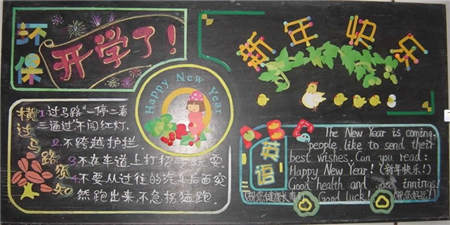 环保
开学了!
新年快乐
Happy New Year
横过马路须知
1.过马路"一停二看
三通过"不闯红灯.
2.不跨越护拦.
3.不在车道上打招
4.不要从过往的汽车后面突
然跑出来不急拐猛跑.
英语
The New Year is coming.
people like to send their
best wishes. Can you read:
Happy New Year! (新年快乐!)
Good health and good
Good luck!